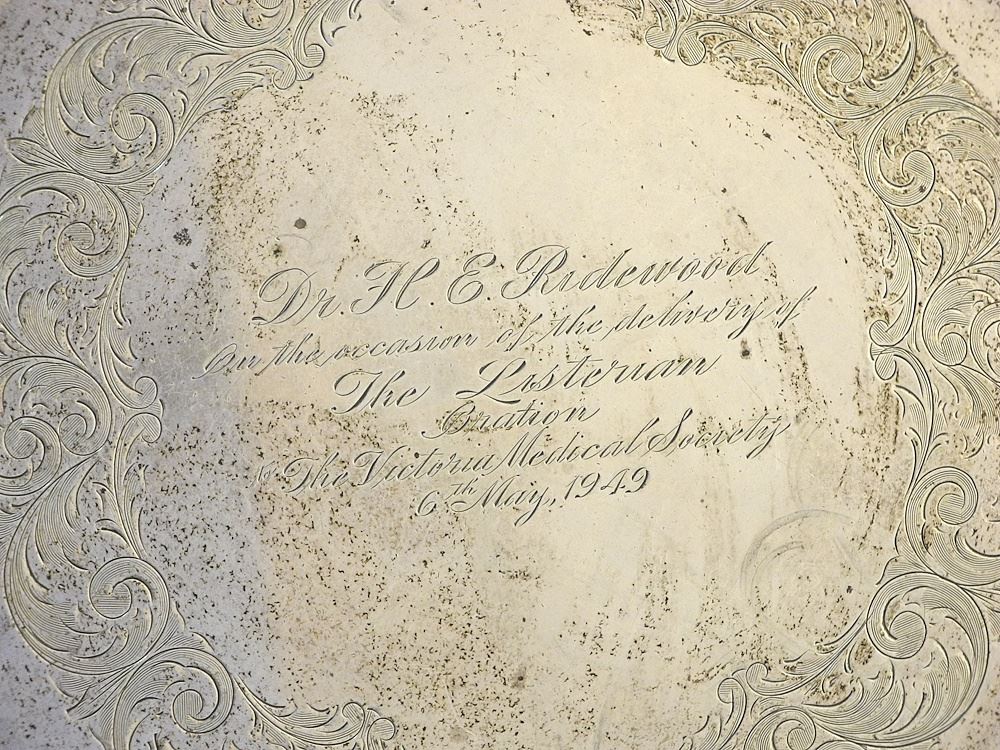 Dr. H. E. Ridewood
On the occasion of the delivery of
The Listerian
Oration
to The Victoria Medical Society
6th May, 1949